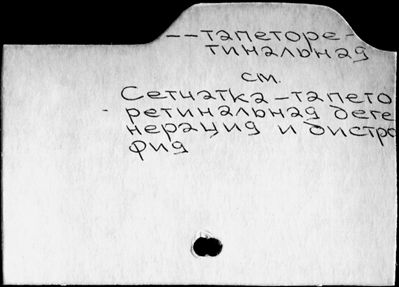 --тапеторе-
тинальная
см.
Сетчатка-тапето
ретинальная деге
нерация и дистро
фия